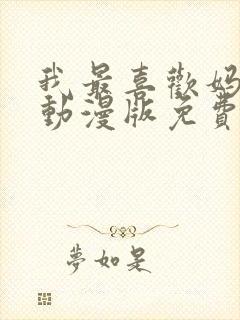 我最喜歡媽
動漫版免費
夢如是